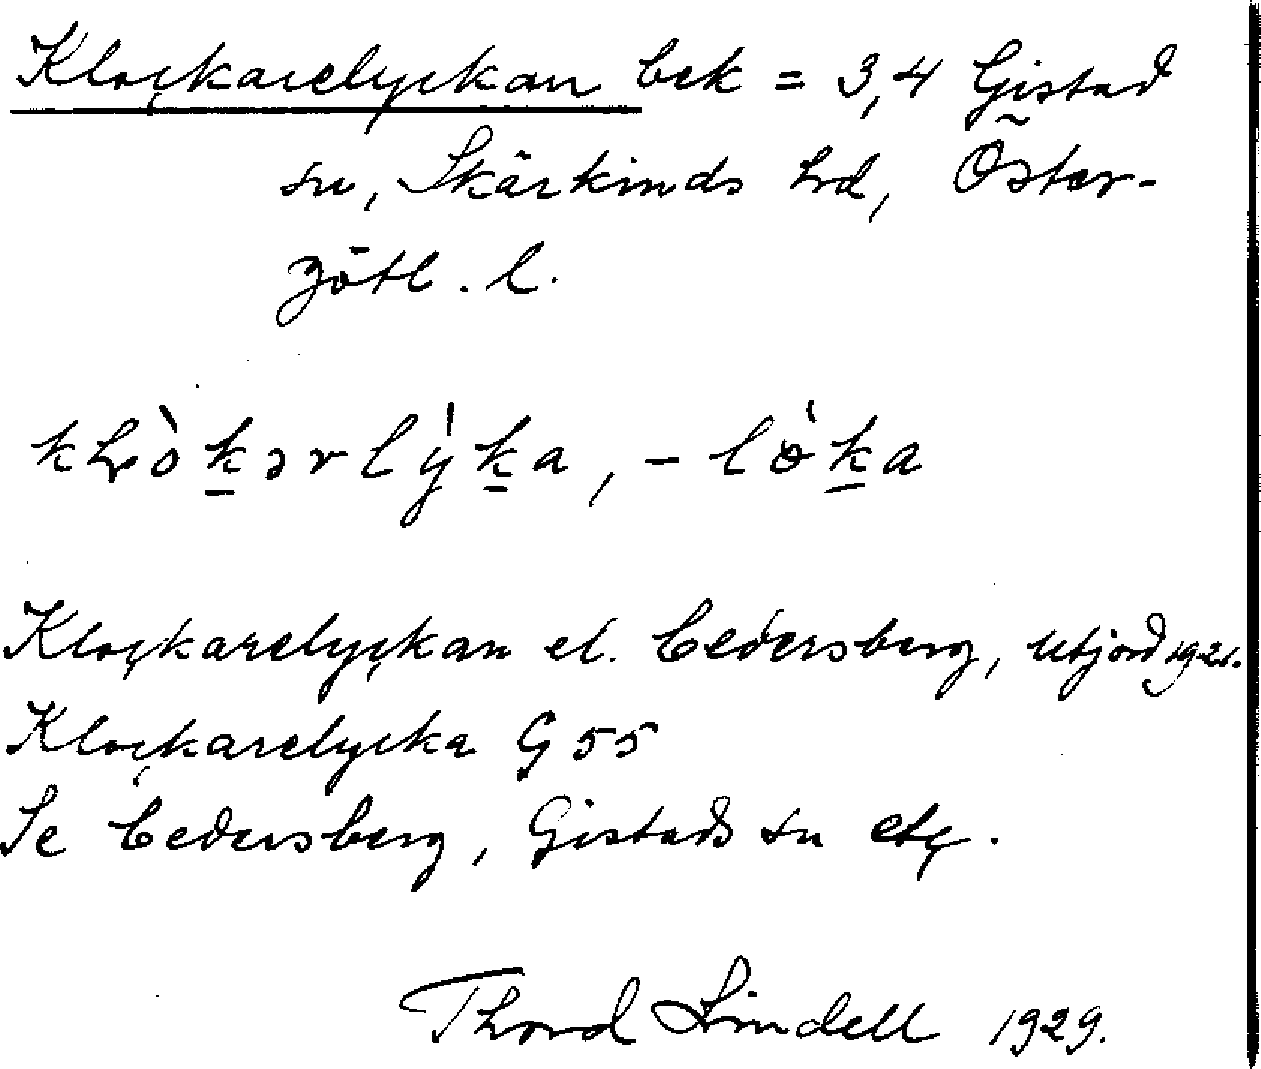 Klockarelyckan bek = 3,4 Gistad
sn, Skärkinds hd, Öster-
götl. l.
kɬò̀kərlýka, -lö́ka
Klockarelyckan el. Cedersberg, utjord 1921.
Klockarelycka G 55
Se Cedersberg, Gistads sn etc.
Thord Lindell 1929.